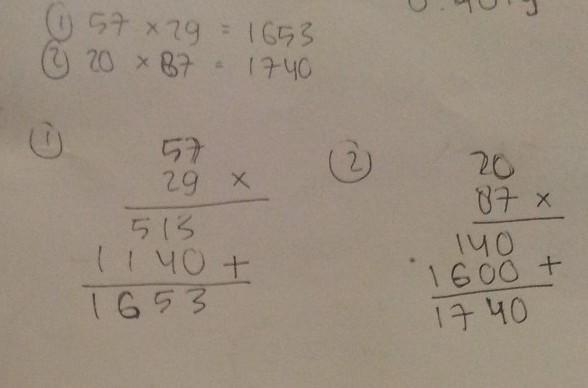 ① 57 × 29 = 1653
② 20 × 87 = 1740
①
57
29 ×
513
1140 +
1653
②
20
87 ×
140
1600 +
1740